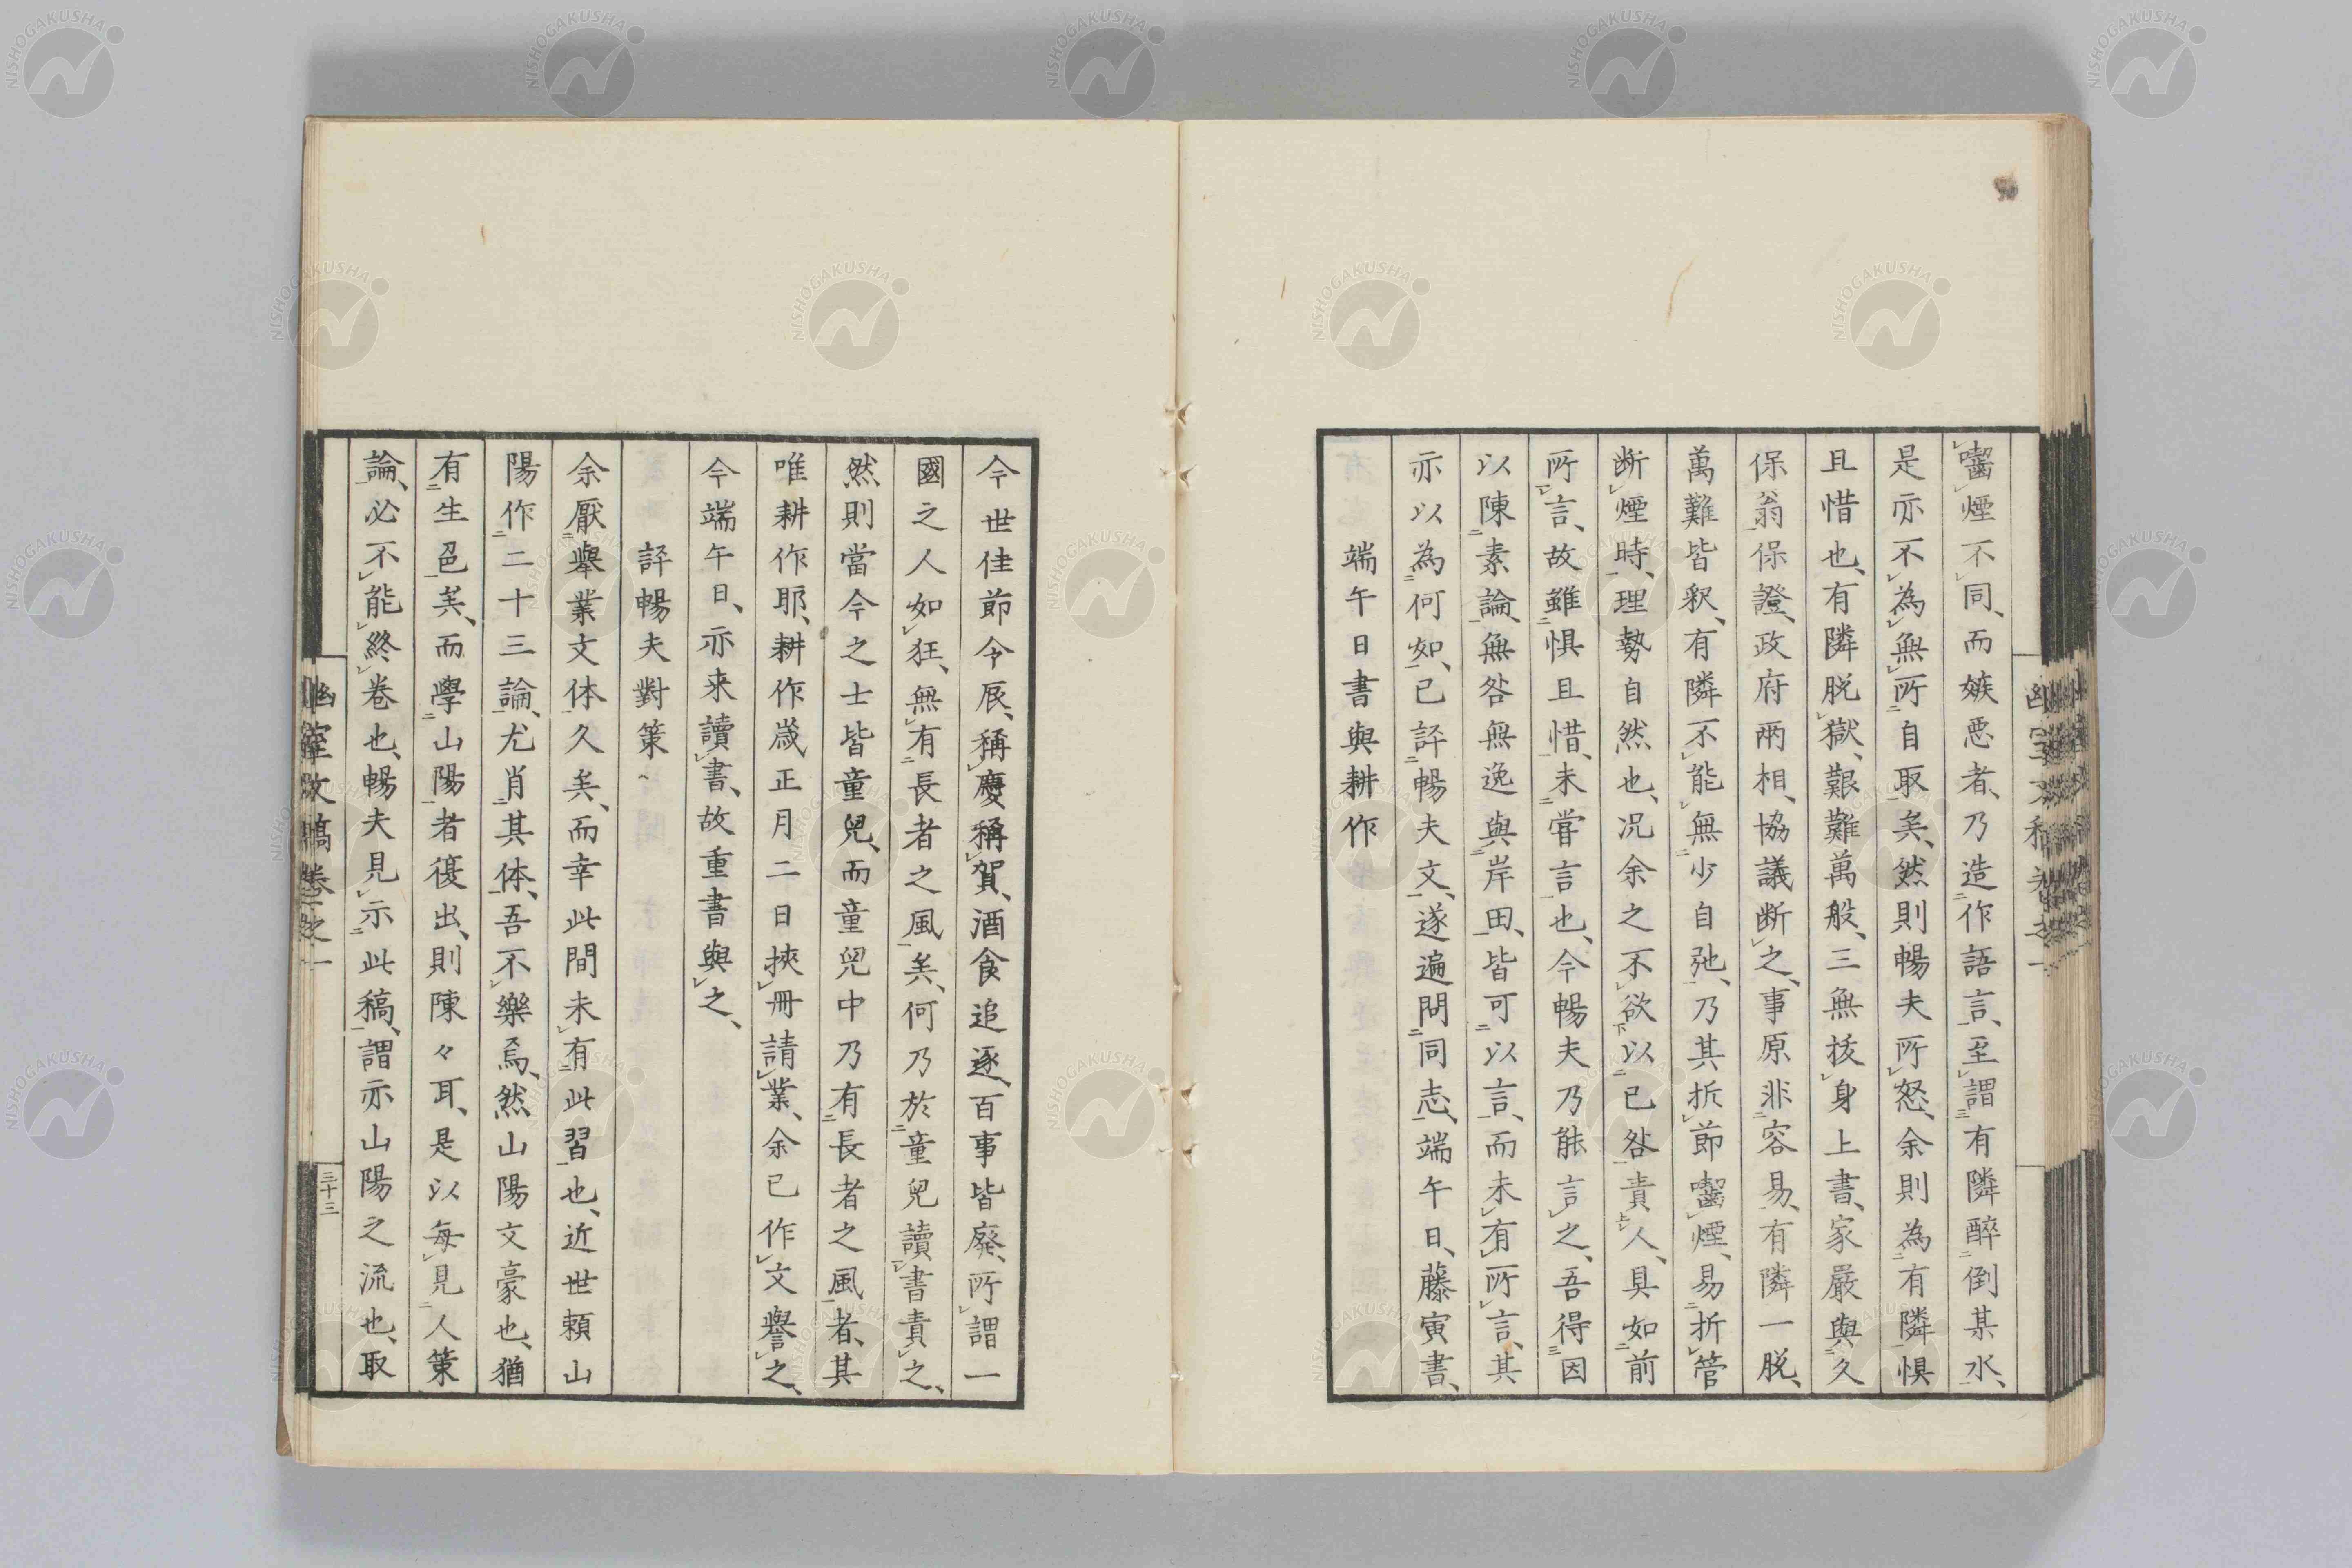 囓煙不同、而嫉悪者、乃造作語言、至謂有隣醉倒某水、
是亦不為無所自取矣、然則暢夫所怒、余則為有隣惧
且惜也、有隣脱獄、艱難萬般、三無抜身上書、家嚴與久
保翁保證、政府兩相、協議断之、事原非容易、有隣一脱、
萬難皆釈、有隣不能無少自弛、乃其折節囓煙、易折管
断煙時、理勢自然也、况余之不欲以已咎責人、具如前
所言、故雖惧且惜、未嘗言也、今暢夫乃能言之、吾得因
以陳素論、無咎無逸與岸田、皆可以言、而未有所言、其
亦以為何如、已評暢夫文、遂遍問同志、端午日、藤寅書、
端午日書與耕作
今世佳節令辰、稱慶稱賀、酒食追逐、百事皆廢、所謂一
國之人如狂、無有長者之風矣、何乃於童兒讀書責之、
然則當今之士皆童兒、而童兒中乃有長者之風者、其
唯耕作耶、耕作歳正月二日挾冊請業、余已作文譽之、
今端午日、亦来讀書、故重書與之、
評暢夫對策
余厭舉業文体久矣、而幸此間未有此習也、近世頼山
陽作二十三論、尤肖其体、吾不樂焉、然山陽文豪也、猶
有生色矣、而學山陽者復出、則陳々耳、是以毎見人策
論、必不能終卷也、暢夫見示此稿、謂亦山陽之流也、取
幽室文稿卷之一
三十三
NISHOGAKUSHA